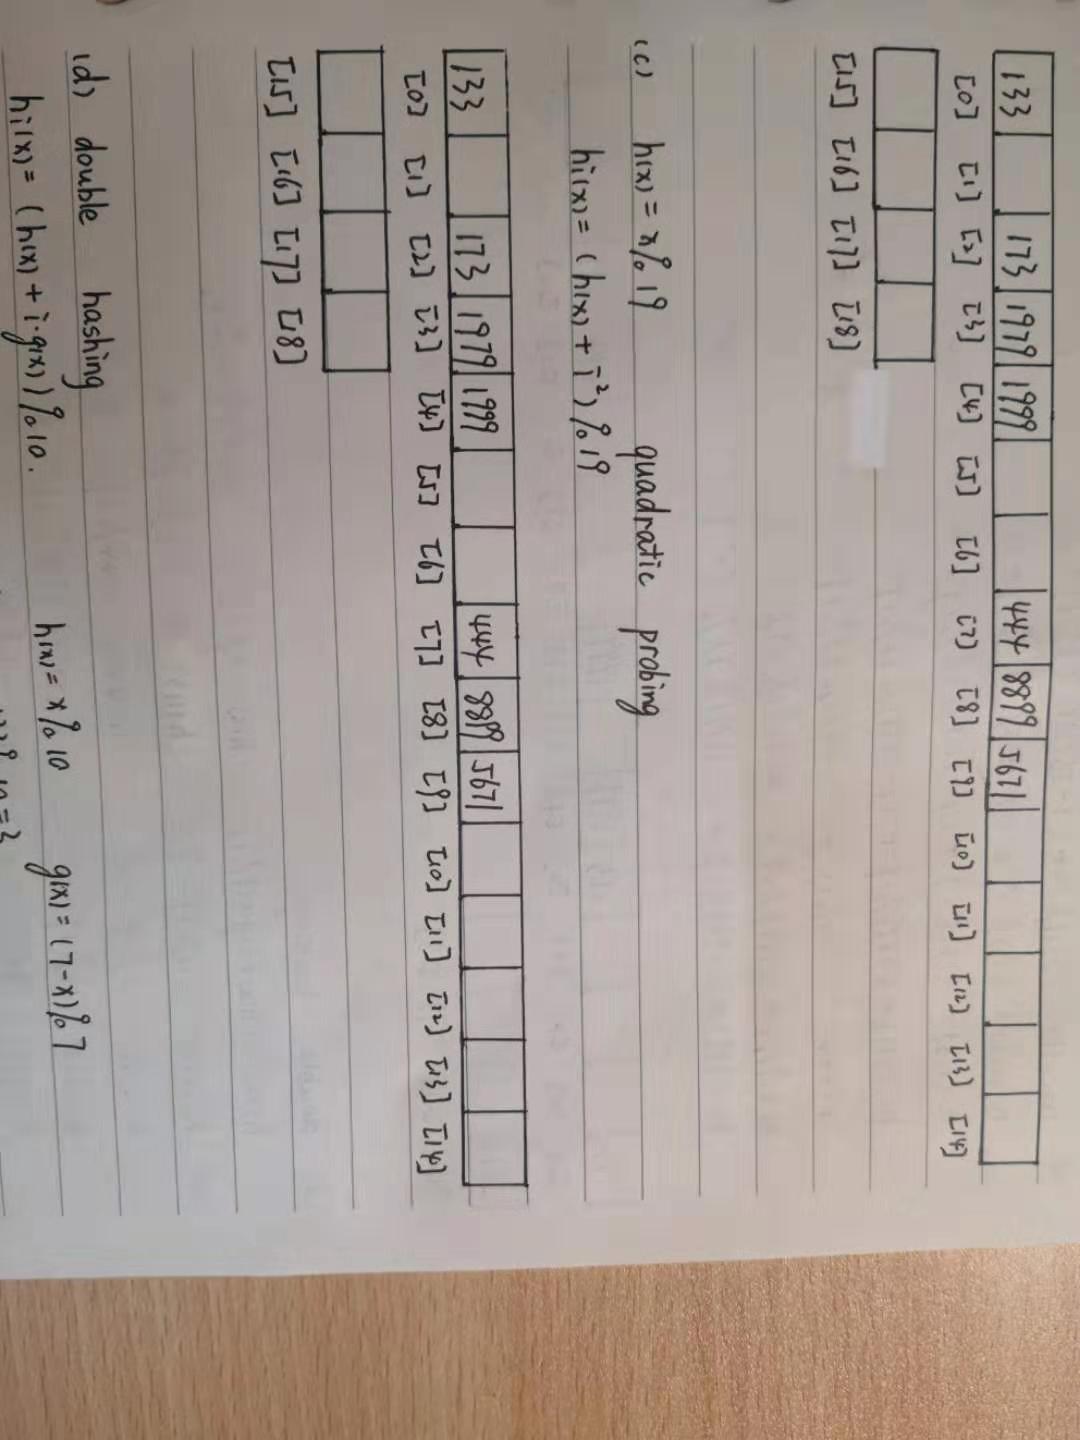 133 173 1979 1999 444 8899 5671
[0] [1] [2] [3] [4] [5] [6] [7] [8] [9] [10] [11] [12] [13] [14]
[15] [16] [17] [18]
(c) h(x) = x%19 quadratic probing
hi(x) = (h(x) + i²)%19
133 173 1979 1999 444 8899 5671
[0] [1] [2] [3] [4] [5] [6] [7] [8] [9] [10] [11] [12] [13] [14]
[15] [16] [17] [18]
(d) double hashing
hi(x) = (h(x) + i·g(x))%10. h(x) = x%10 g(x) = (7-x)%7